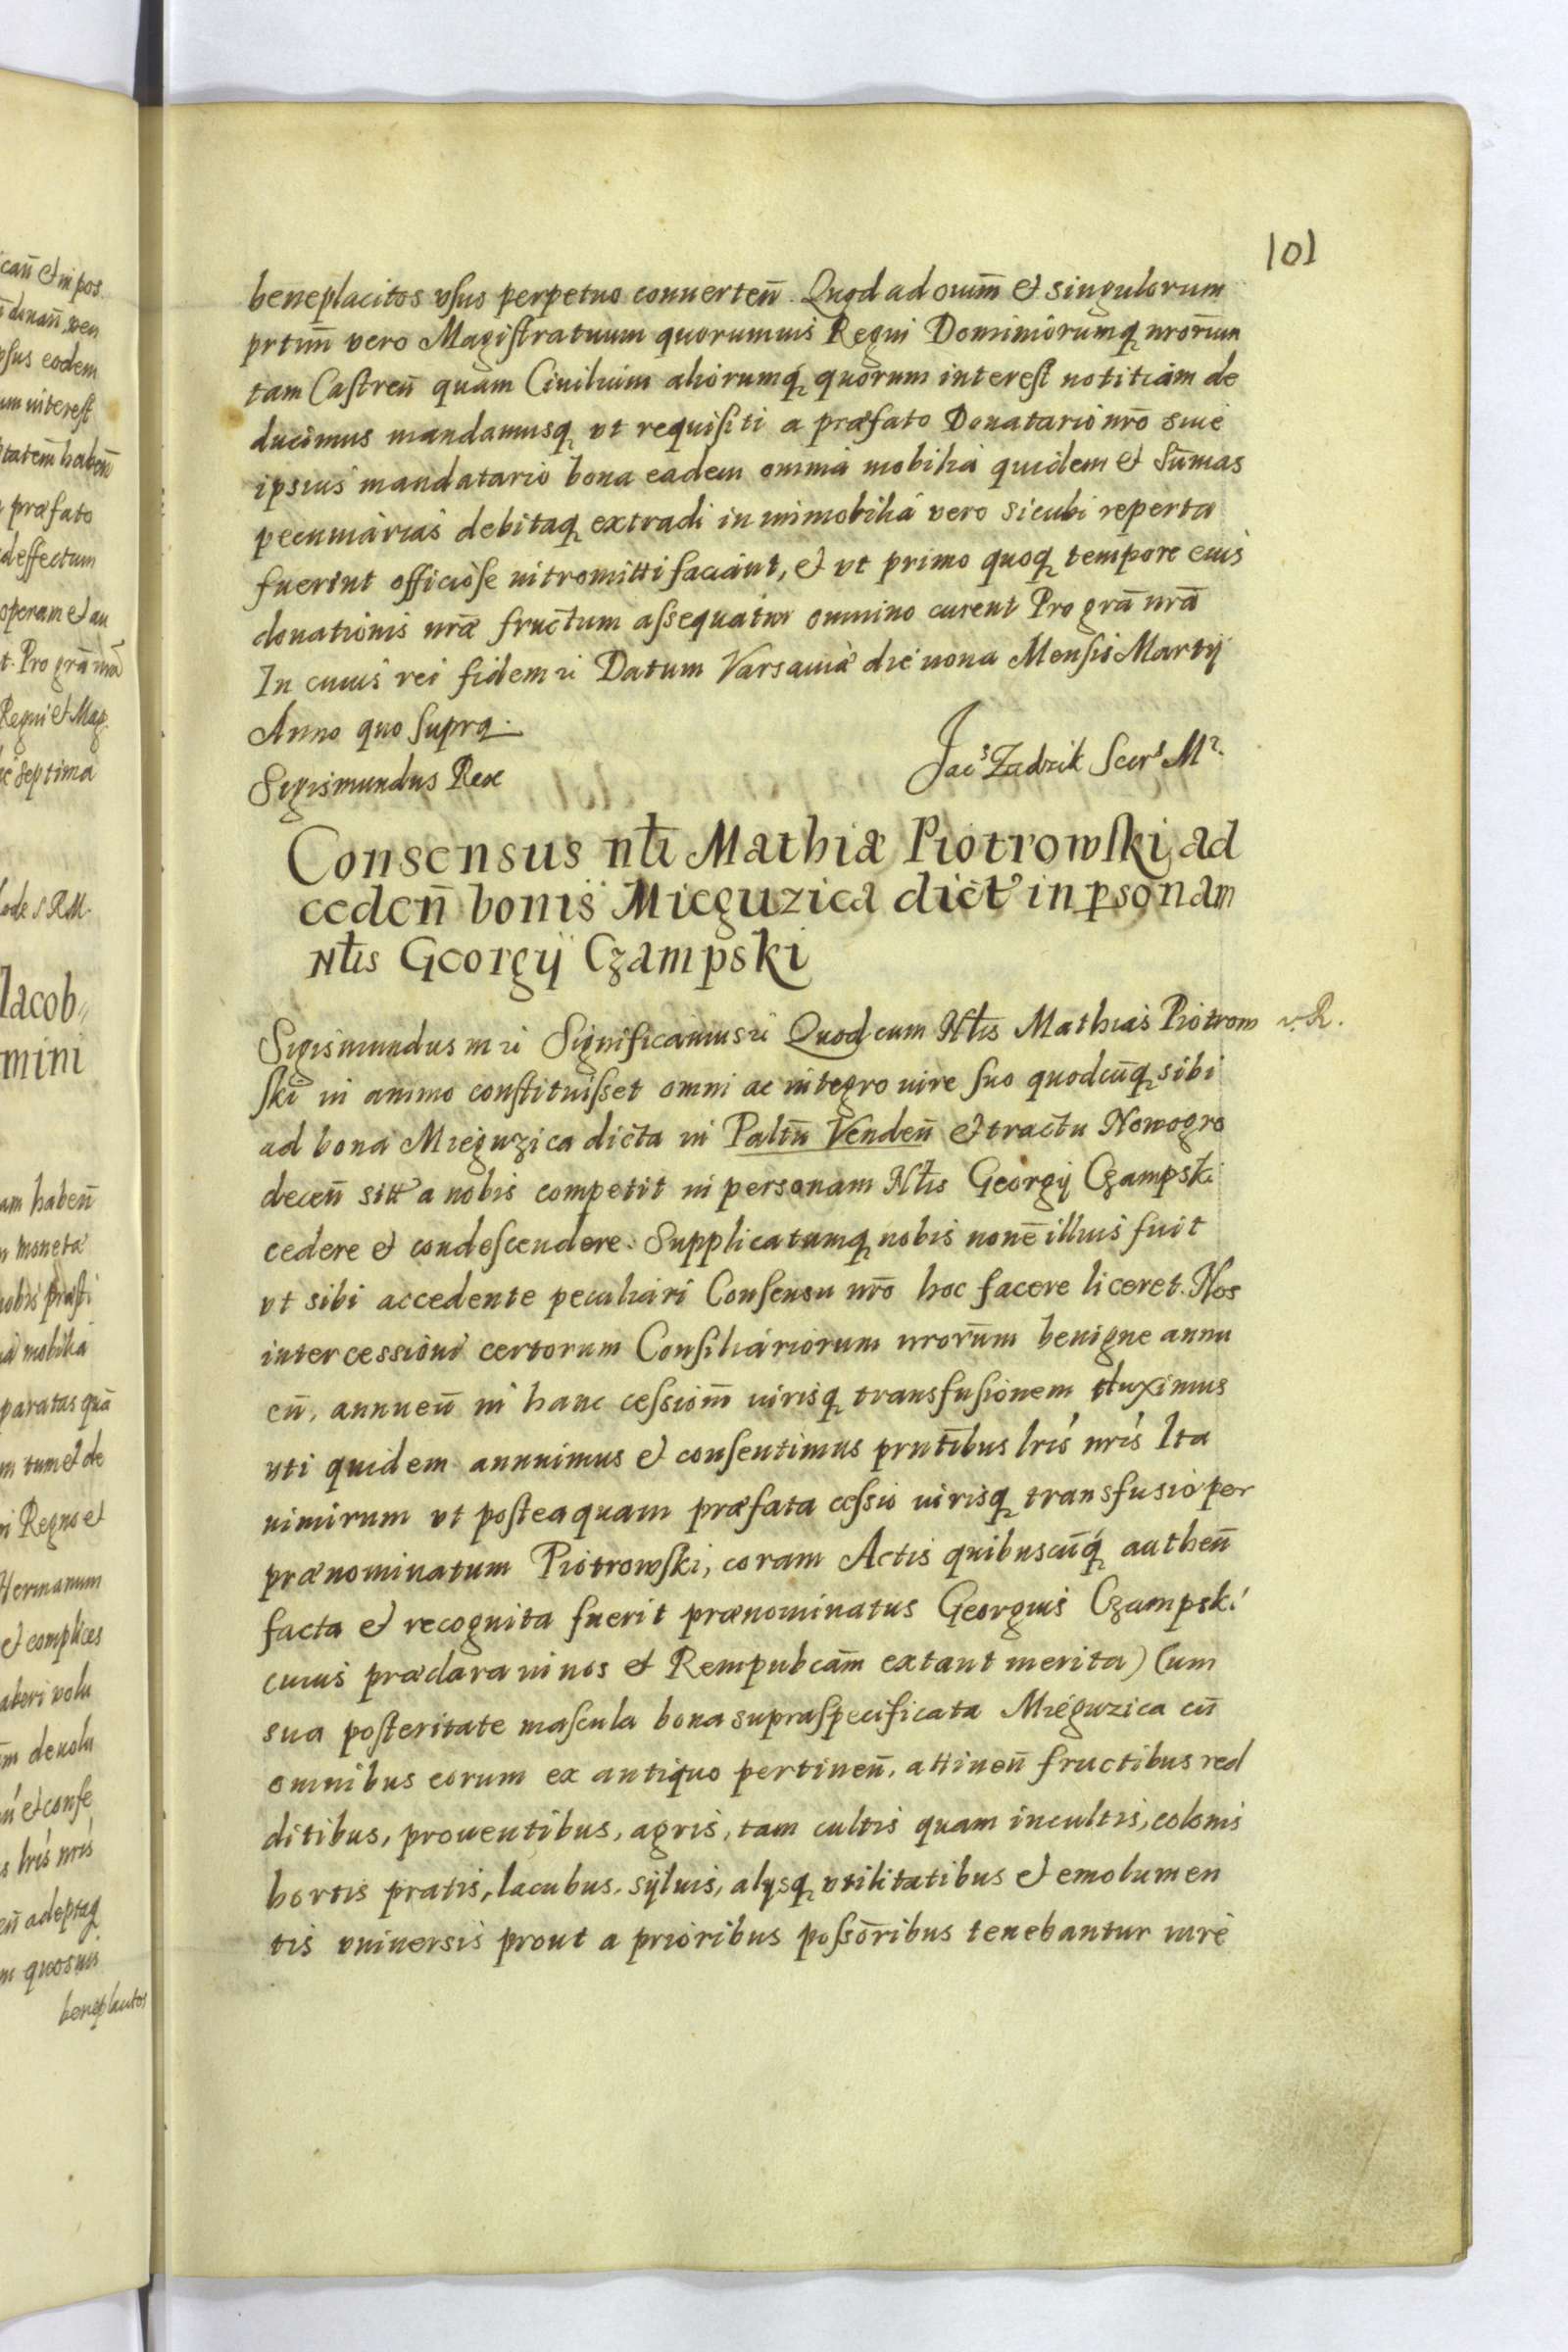 101
beneplacitos vsus perpetuo conuerteñ. Quod ad oium̄ et singulorum
prtim̄ vero Magistratuum quorumuis Regni Dominiorumq nrorum
tam Castreñ quam Ciuilium aliorumq quorum interest notitiam de
ducimus mandamusq vt requisiti a præfato Donatario nr̄o siue
ipsius mandatario bona eadem omnia mobilia quidem et sum̄as
pecuniarias debitaq extradi in immobilia vero sicubi reperta
fuerint officiose intromitti faciant, et vt primo quoq tempore eius
donationis nr̄æ fructum assequatur omnino curent Pro grā nr̄a
In cuius rei fidem Datum Varsauiæ die nona Mensis Martij
Anno quo supra.
Sigismundus Rex
Jacs Zadzik Secrs Mr.
Consensus nłi Mathiæ Piotrowski ad
cedeñ bonis Mieguzica dict in psonam
Nłis Georgij Czampski
Sigismundus Significamus Quod cum Nłis Mathias Piotrow
v. R.
ski in animo constituisset omni ac integro iure suo quodcūq sibi
ad bona Mieguzica dicta in Paltū Vendeñ et tractu Nowogro
deceñ sitt a nobis competit in personam Nłis Georgij Czampski
cedere et condescendere. Supplicatumq nobis noīe illius fuit
vt sibi accedente peculiari Consensu nr̄o hoc facere liceret. Nos
intercessioni certorum Consiliariorum nrorum benigne annu
eñ, annueñ in hanc cessionē iurisq transfusionem duximus
vti quidem annuimus et consentimus prntibus lris nris Ita
nimirum vt posteaquam præfata cessio iurisq transfusio per
prænominatum Piotrowski, coram Actis quibuscūq autheñ
facta et recognita fuerit prænominatus Georgius Czampski
cuius præclara in nos et Rempubcam extant merita) Cum
sua posteritate mascula bona supraspecificata Mieguzica cū
omnibus eorum ex antiquo pertineñ, attineñ fructibus red
ditibus, prouentibus, agris, tam cultis quam incultis, colonis
hortis pratis, lacubus, syluis, alysq vtilitatibus et emolumen
tis vniuersis prout a prioribus possoribus tenebantur iure